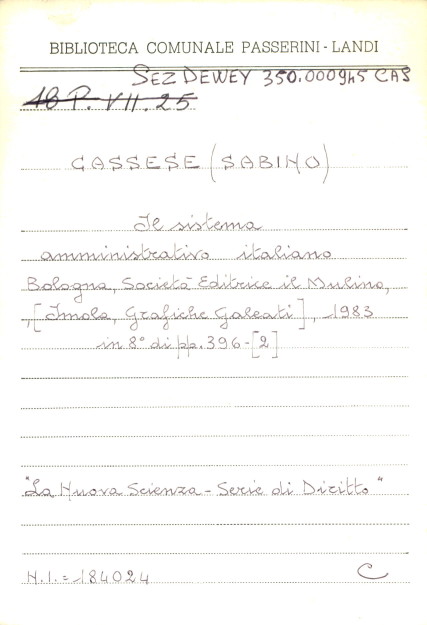 BIBLIOTECA COMUNALE PASSERINI - LANDI
SEZ DEWEY 350.000945 CAS
18 P. VII. 25
CASSESE (SABINO)
Il sistema
amministrativo italiano
Bologna, Società Editrice il Mulino,
, [Imola, Grafiche Galeati], 1983
in 8° di pp. 396-[2]
"La Nuova Scienza - Serie di Diritto"
N.I. = 184024 C